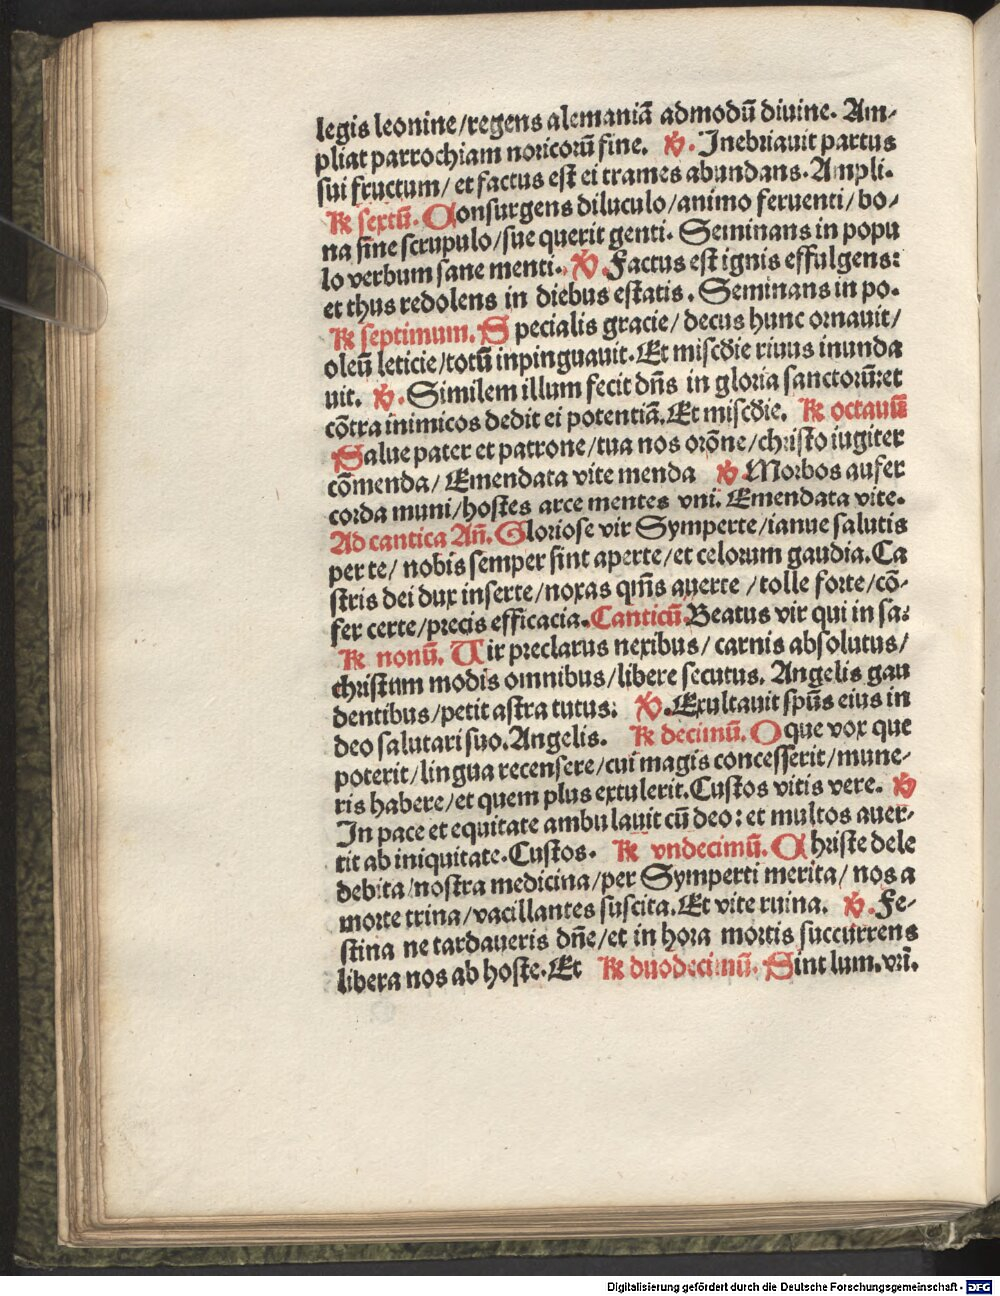 legis leonine/regens alemaniā admodū diuine. Am-
pliat parrochiam noricorū fine. ℣. Inebriauit partus
sui fructum/ et factus est ei trames abundans. Ampli.
℟ sextū. Consurgens diluculo/animo feruenti/ bo-
na sine scrupulo/sue querit genti. Seminans in popu
lo verbum sane menti. ℣. Factus est ignis effulgens:
et thus redolens in diebus estatis. Seminans in po.
℟ septimum. Specialis gracie/ decus hunc ornauit/
oleū leticie/totū inpinguauit. Et miscōie riuus inunda
uit. ℣. Similem illum fecit dn̄s in gloria sanctorū:et
cōtra inimicos dedit ei potentiā. Et miscōie. ℟ octauū
Salue pater et patrone/tua nos orōne/christo iugiter
cōmenda/ Emendata vite menda ℣ Morbos aufer
corda muni/hostes arce mentes vni. Emendata vite.
Ad cantica An̄. Gloriose vir Symperte/ianue salutis
per te/ nobis semper sint aperte/et celorum gaudia. Ca
stris dei dux inserte/noxas qm̄s auerte /tolle forte/cō-
fer certe/precis efficacia. Canticū. Beatus vir qui in sa:
℟ nonū. Uir preclarus nexibus/ carnis absolutus/
christum modis omnibus/libere secutus. Angelis gau
dentibus/petit astra tutus: ℣. Exultauit spūs eius in
deo salutari suo. Angelis. ℟ decimū. O que vox que
poterit/lingua recensere/cui magis concesserit/mune-
ris habere/et quem plus extulerit. Custos vitis vere. ℣
In pace et equitate ambulauit cū deo: et multos auer-
tit ab iniquitate. Custos. ℟ vndecimū. Christe dele
debita/nostra medicina/per Symperti merita/ nos a
morte trina/vacillantes suscita. Et vite ruina. ℣. Fe-
stina ne tardaueris dn̄e/et in hora mortis succurrens
libera nos ab hoste. Et ℟ duodecimū. Sint lum. vr̄i.
Digitalisierung gefördert durch die Deutsche Forschungsgemeinschaft - DFG